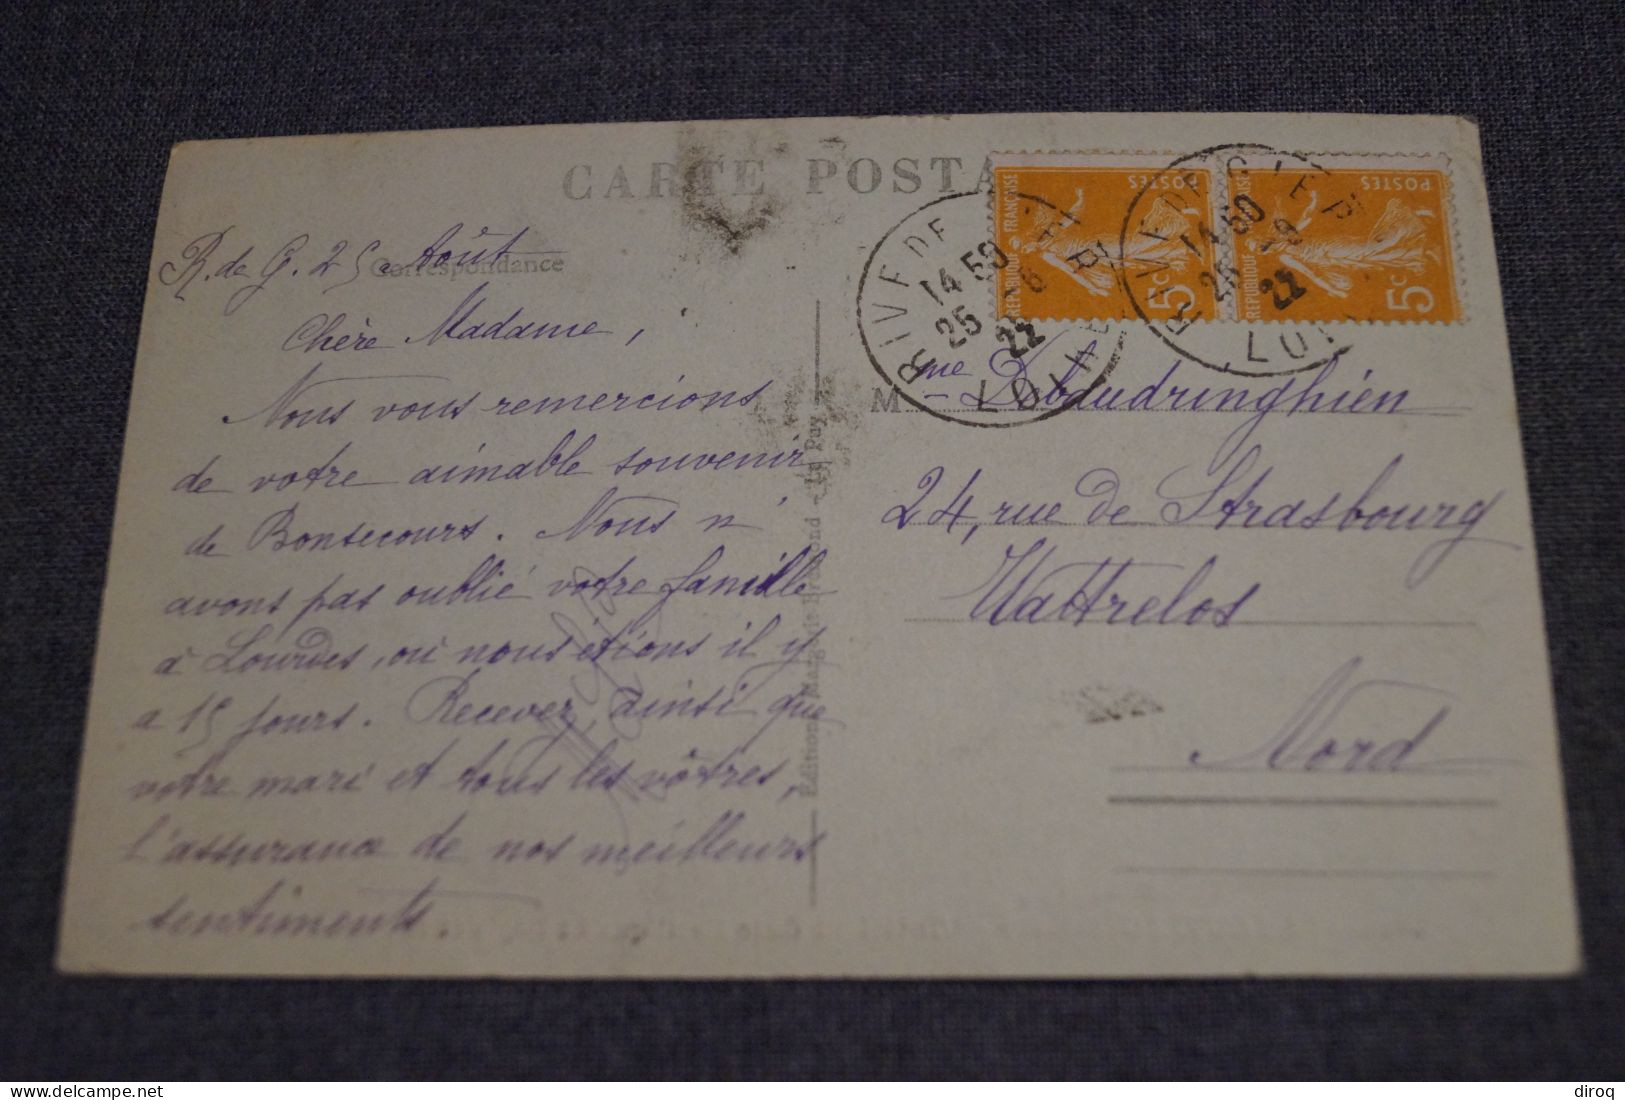 CARTE POSTA
Correspondance
R. de G. 25 Août
Chère Madame,
Nous vous remercions
de votre aimable souvenir
de Bonsecours. Nous n'
avons pas oublié votre famille
à Lourdes, où nous étions il y
a 15 jours. Recevez ainsi que
votre mari et tous les vôtres,
l'assurance de nos meilleurs
sentiments.
Edition Margerit-Brémond - Le Puy
RIVE DE GIER
14 50
25 8
22
LOIRE
RIVE DE GIER
14 50
25 8
22
LOIRE
REPUBLIQUE FRANÇAISE
POSTES
5c
POSTES
5c
M me Debaudringhien
24, rue de Strasbourg
Wattrelos
Nord
diroq